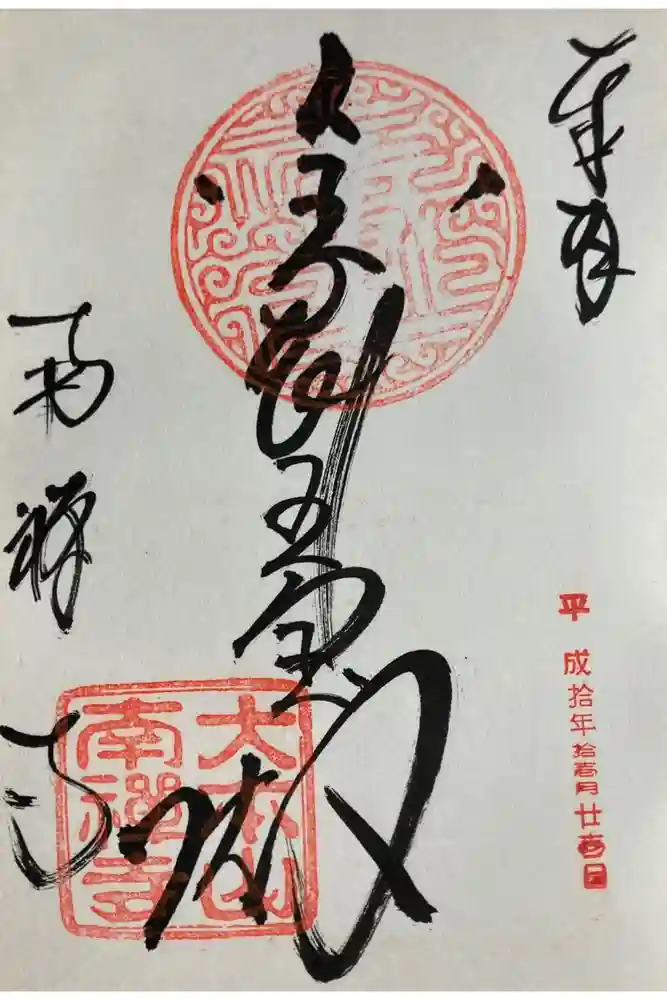 奉拝
平成拾年拾壱月廿壱日
金剛王宝殿
南禅寺
大本山
南禪寺